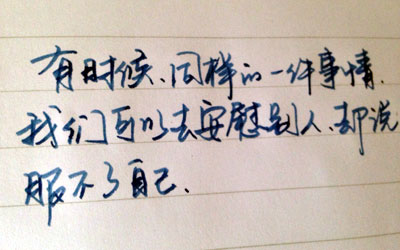 有时候、同样的一件事情、
我们可以去安慰别人、却说
服不了自己、